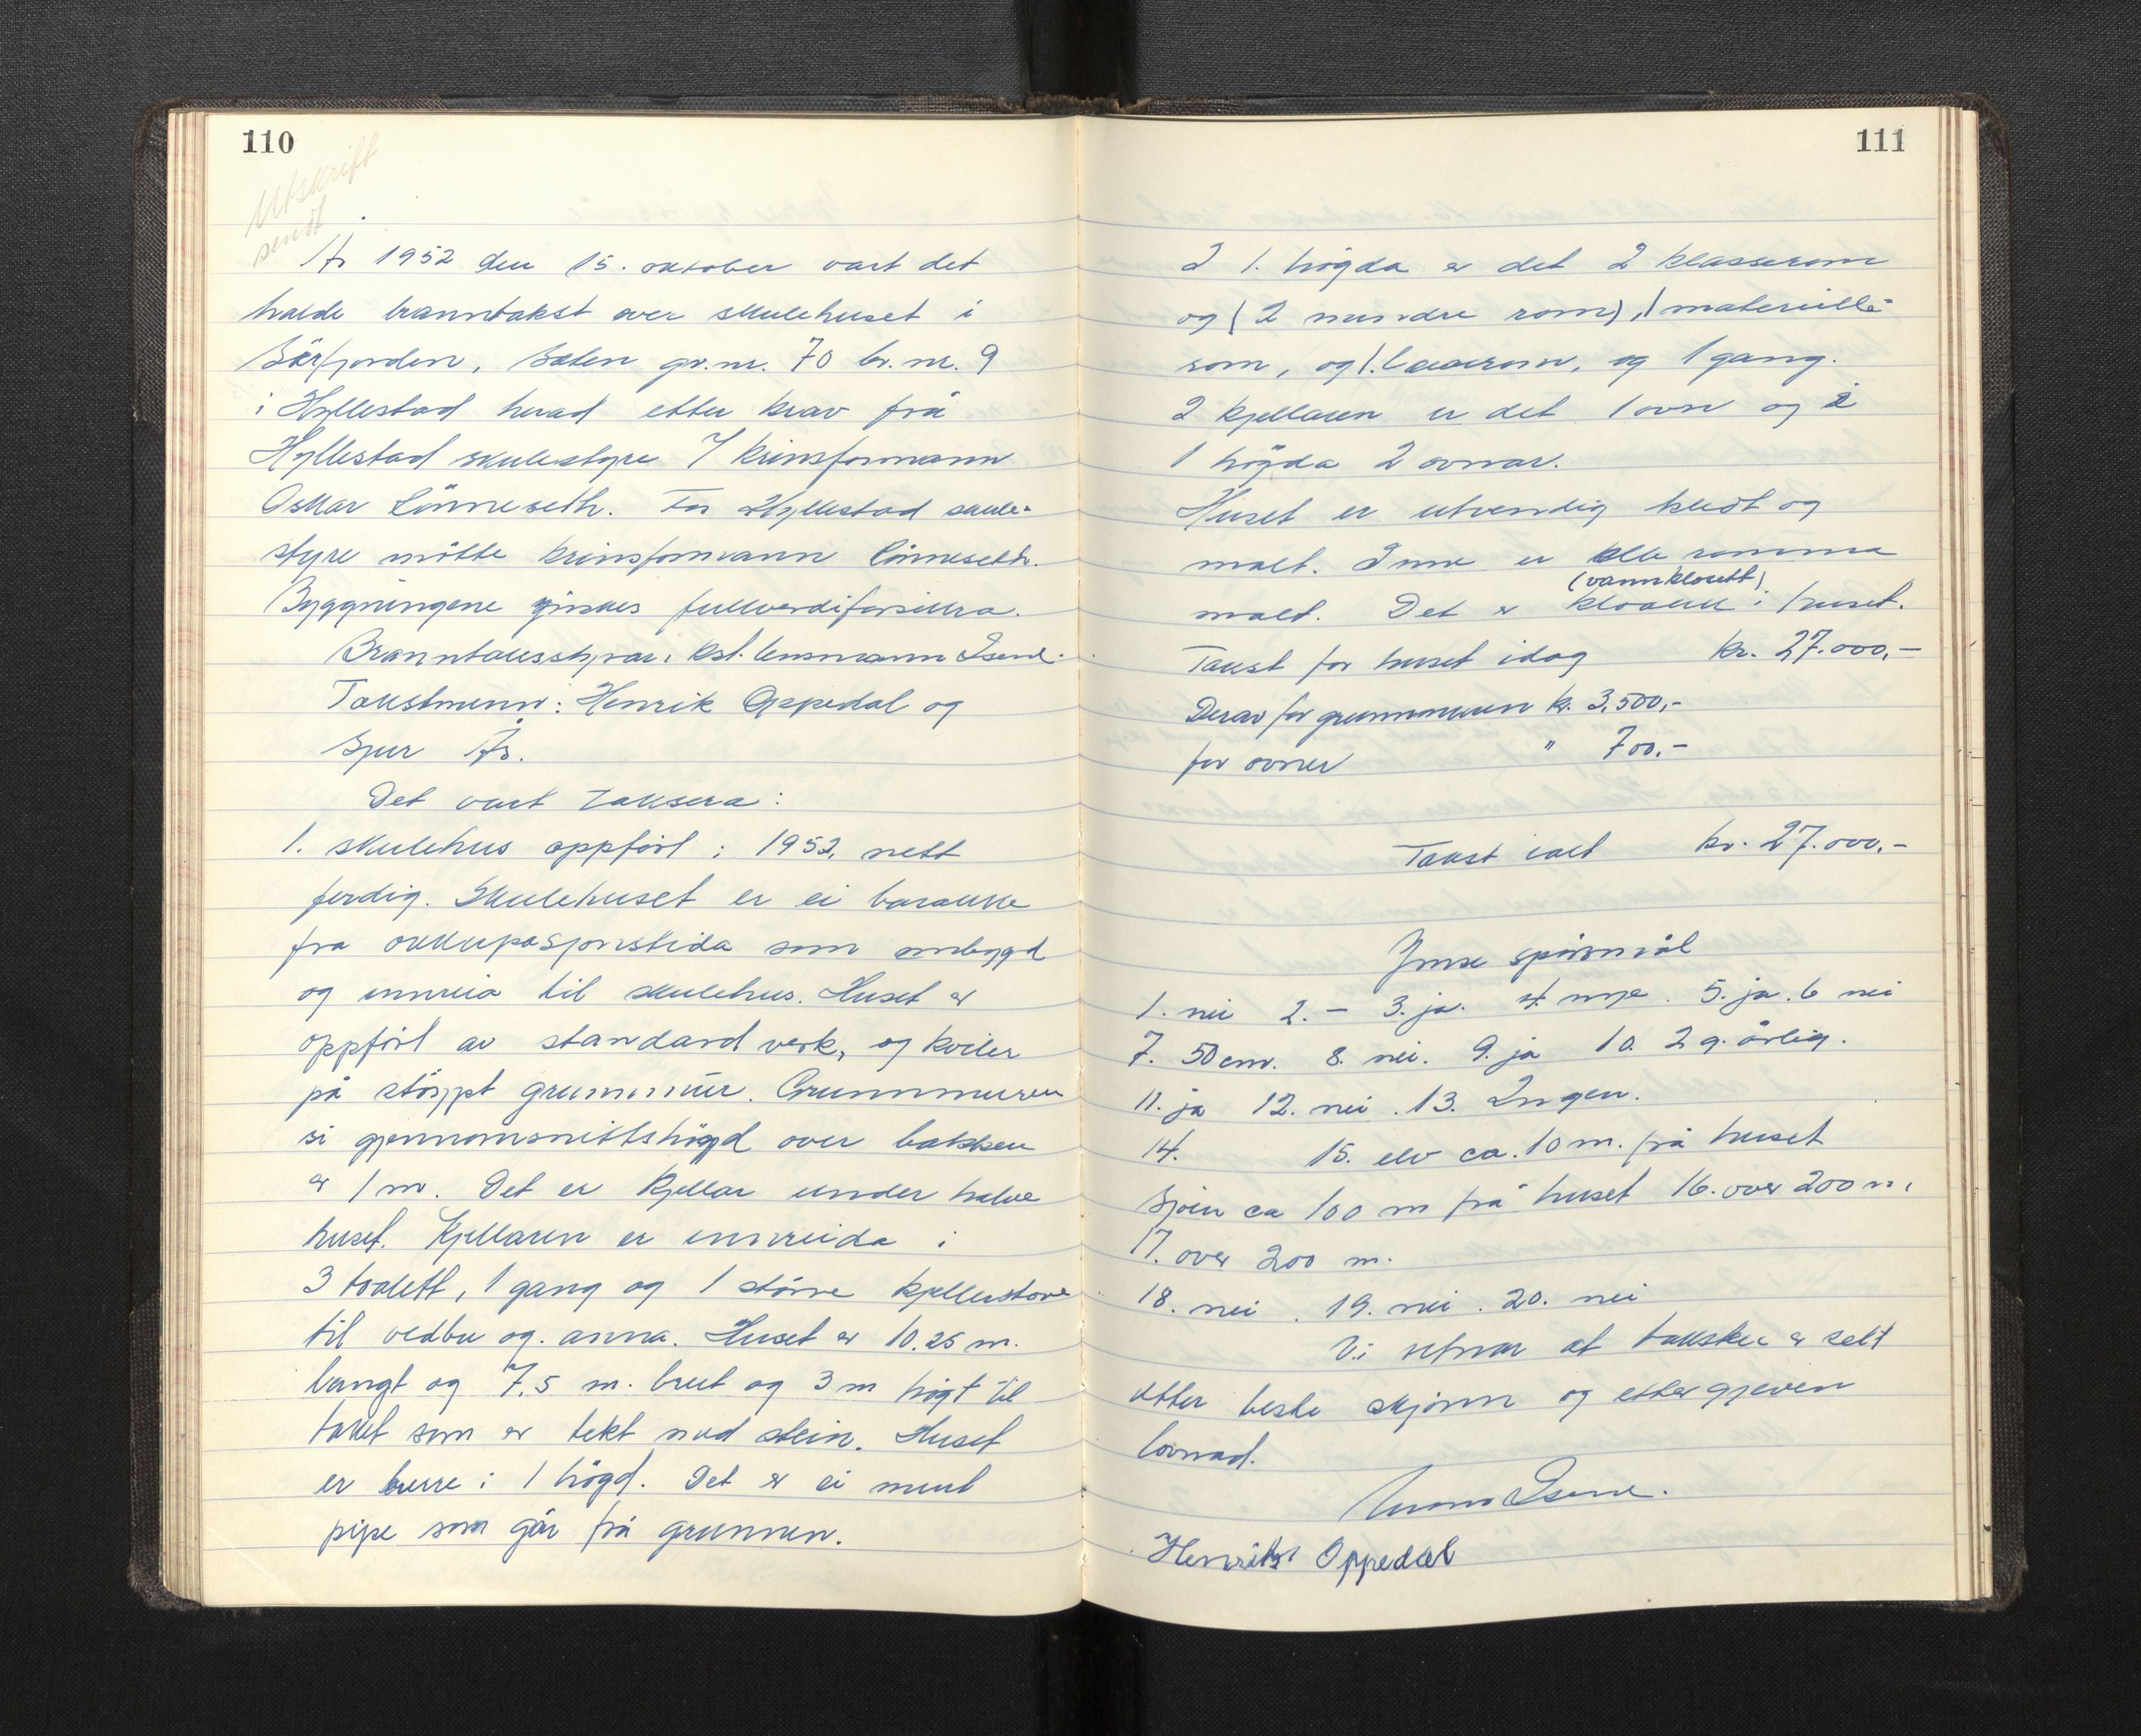 110
Utskrift
sendt
År 1952 den 15. oktober vart det
halde branntakst over skulehuset i
Sørfjorden, Sæten gr.nr. 70 br. nr. 9
i Hyllestad herad etter krav frå
Hyllestad skulestyre v/ krinsformann
Oskar Lönneseth. For Hyllestad skule-
styre mötte krinsformann Lönneseth.
Byggningene ynskes fullverdiforsikra.
Branntakstyrar, kst. lensmann Isene.
Takstmenn: Henrik Oppedal og
Sjur Ås.
Det vart taksera:
1. skulehus oppfört i 1952, nett
ferdig. Skulehuset er ei barakke
fra okkupasjonstida som ombygd
og innreia til skulehus. Huset er
oppfört av standard verk, og kviler
på stöypt grunnmur. Grunnmuren
si gjennomsnittshögd over bakken
er 1 m. Det er kjellar under halve
huset. Kjellaren er innreida i
3 toalett, 1 gang og 1 större kjellerstove
til vedbu og. anna. Huset er 10.25 m.
langt og 7,5 m. breit og 3 m högt til
taket som er tekt med stein. Huset
er berre i 1 högd. Det er ei murt
pipe som går frå grunnen.
111
I 1. högda er det 2 klasserom
og (2 mindre rom), 1 materiell-
rom, og 1. lærarrom, og 1 gang.
I kjellaren er det 1 ovn og i
1 högda 2 ovnar.
Huset er utvendig kledt og
malt. Inne er alle romma
(vannklosett)
malt. Det er kloakk i huset.
Takst for huset idag kr. 27.000,-
Derav for grunnmuren kr. 3.500,-
for ovner " 700.-
Takst ialt kr. 27.000.-
Ymse spörsmål
1. nei 2. - 3. ja. 4. mye. 5. ja. 6 nei
7. 50 cm. 8. nei. 9. ja 10. 2 g. årlig.
11. ja 12. nei. 13. Ingen.
14. 15. elv ca. 10 m. frå huset
Sjöen ca 100 m frå huset 16. over 200 m.
17. over 200 m.
18. nei. 19. nei. 20. nei
Vi vitnar at taksten er sett
etter beste skjönn og etter gjeven
lovnad.
Isene.
Henrik Oppedal